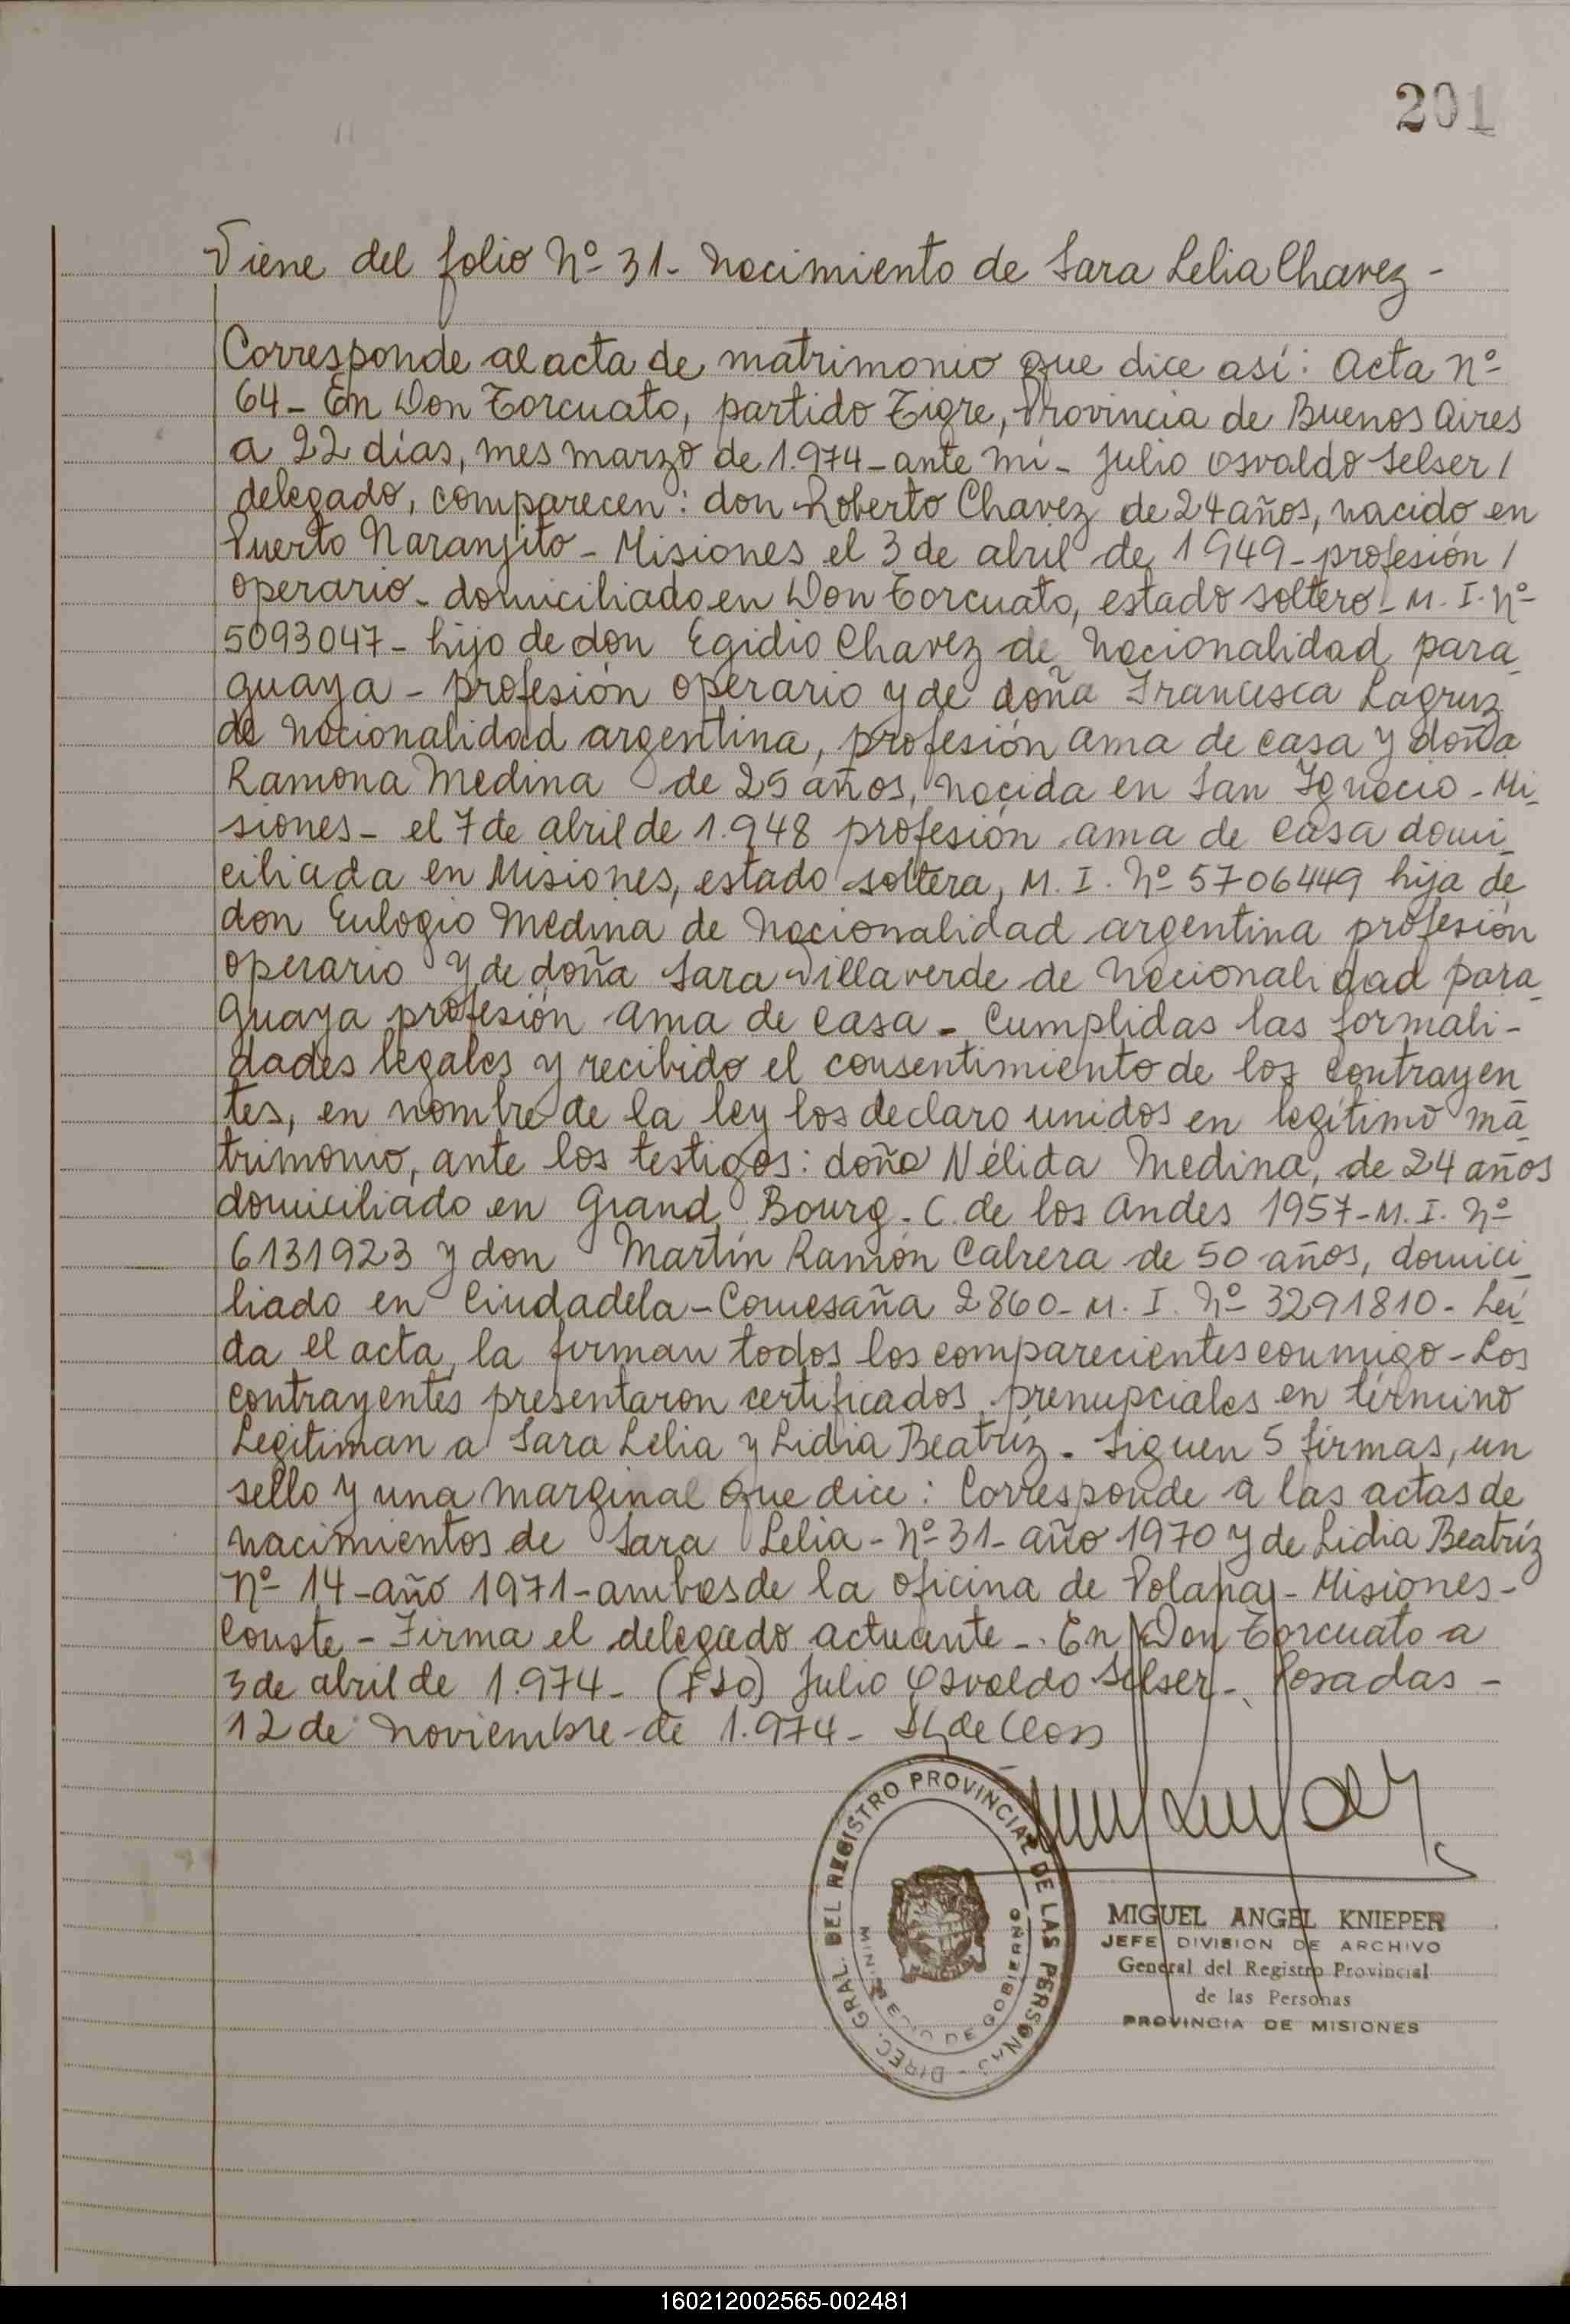 201
Viene del folio Nº 31- Nacimiento de Sara Lelia Chavez -
Corresponde al acta de matrimonio que dice así: Acta Nº
64- En Don Torcuato, partido Tigre, Provincia de Buenos Aires
a 22 días, mes marzo de 1.974- ante mí- Julio Osvaldo Selser /
delegado, comparecen: don Roberto Chavez de 24 años, nacido en
Puerto Naranjito - Misiones el 3 de abril de 1949- profesión /
operario- domiciliado en Don Torcuato, estado soltero- M. I. Nº
5093047- hijo de don Egidio Chavez de Nacionalidad para_
guaya - profesión operario y de doña Francisca Lagruz
de Nacionalidad argentina, profesión ama de casa y doña
Ramona Medina de 25 años, nacida en San Ignacio - Mi_
siones- el 7 de abril de 1.948 profesión ama de casa domi_
ciliada en Misiones, estado soltera, M. I. Nº 5706449 hija de
don Eulogio Medina de Nacionalidad argentina profesión
operario y de doña Sara Villaverde de Nacionalidad para_
guaya profesión ama de casa - Cumplidas las formali-
dades legales y recibido el consentimiento de los contrayen
tes, en nombre de la ley los declaro unidos en legítimo ma_
trimonio, ante los testigos: doña Nélida Medina, de 24 años
domiciliado en Grand Bourg - C. de los Andes 1957- M. I. Nº
6131923 y don Martín Ramón Cabrera de 50 años, domici_
liado en Ciudadela - Comesaña 2860- M. I. Nº 3291810- Leí_
da el acta, la firman todos los comparecientes conmigo - Los
contrayentes presentaron certificados prenupciales en término
Legitiman a Sara Lelia y Lidia Beatríz - Siguen 5 firmas, un
sello y una marginal que dice: Corresponde a las actas de
nacimientos de Sara Lelia - Nº 31- año 1970 y de Lidia Beatríz
Nº 14 - año 1971 - ambas de la oficina de Polana - Misiones-
Conste - Firma el delegado actuante -. En Don Torcuato a
3 de abril de 1.974- (FDO) Julio Osvaldo Selser-. Posadas -
12 de Noviembre de 1.974-
DIREC. GRAL. DEL REGISTRO PROVINCIAL DE LAS PERSONAS -
MINISTERIO DE GOBIERNO
MIGUEL ANGEL KNIEPER
JEFE DIVISION DE ARCHIVO
General del Registro Provincial
de las Personas
PROVINCIA DE MISIONES
160212002565-002481